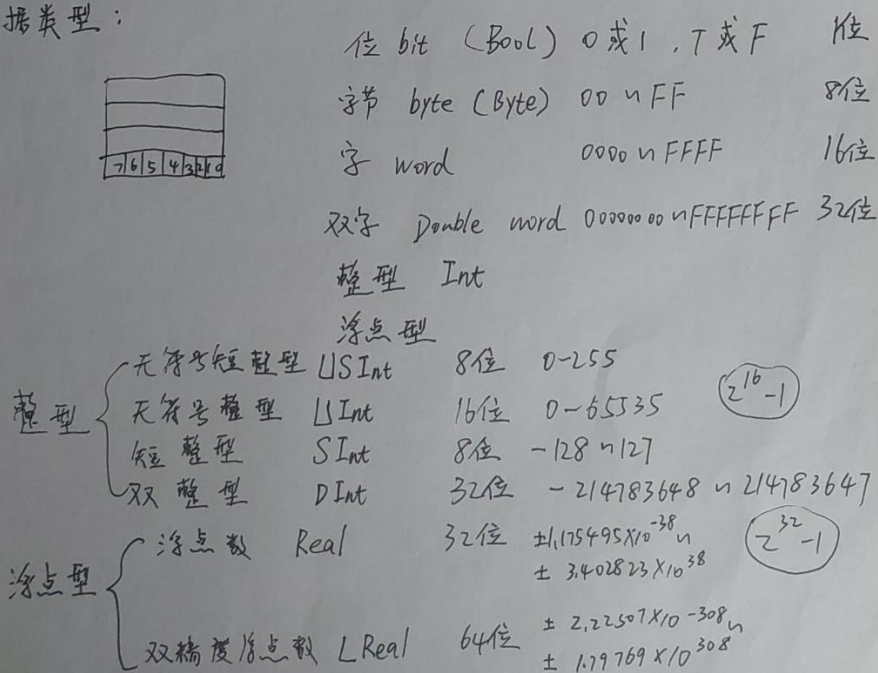 据类型：
位 bit （Bool） 0或1，T或F 1位
字节 byte (Byte) 00~FF 8位
字 word 0000~FFFF 16位
7 6 5 4 3 2 1 0
双字 Double word 00000000~FFFFFFFF 32位
整型 Int
浮点型
无符号短整型 USInt 8位 0-255
整型 无符号整型 UInt 16位 0-65535 2^16-1
短整型 SInt 8位 -128~127
双整型 DInt 32位 -214783648~214783647
浮点数 Real 32位 ±1.175495×10^-38~ 2^32-1
± 3.402823×10^38
浮点型
± 2.22507×10^-308~
双精度浮点数 LReal 64位
± 1.79769×10^308